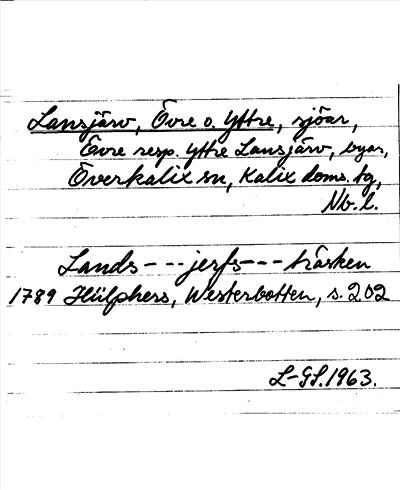 Lansjärv, Övre o. Yttre, sjöar,
Övre resp. Yttre Lansjärv, byar,
Överkalix sn, Kalix doms. tg,
Nb. l.
Lands---jerfs---träsken
1789 Hülphers, Westerbotten, s. 202
L-GS. 1963.